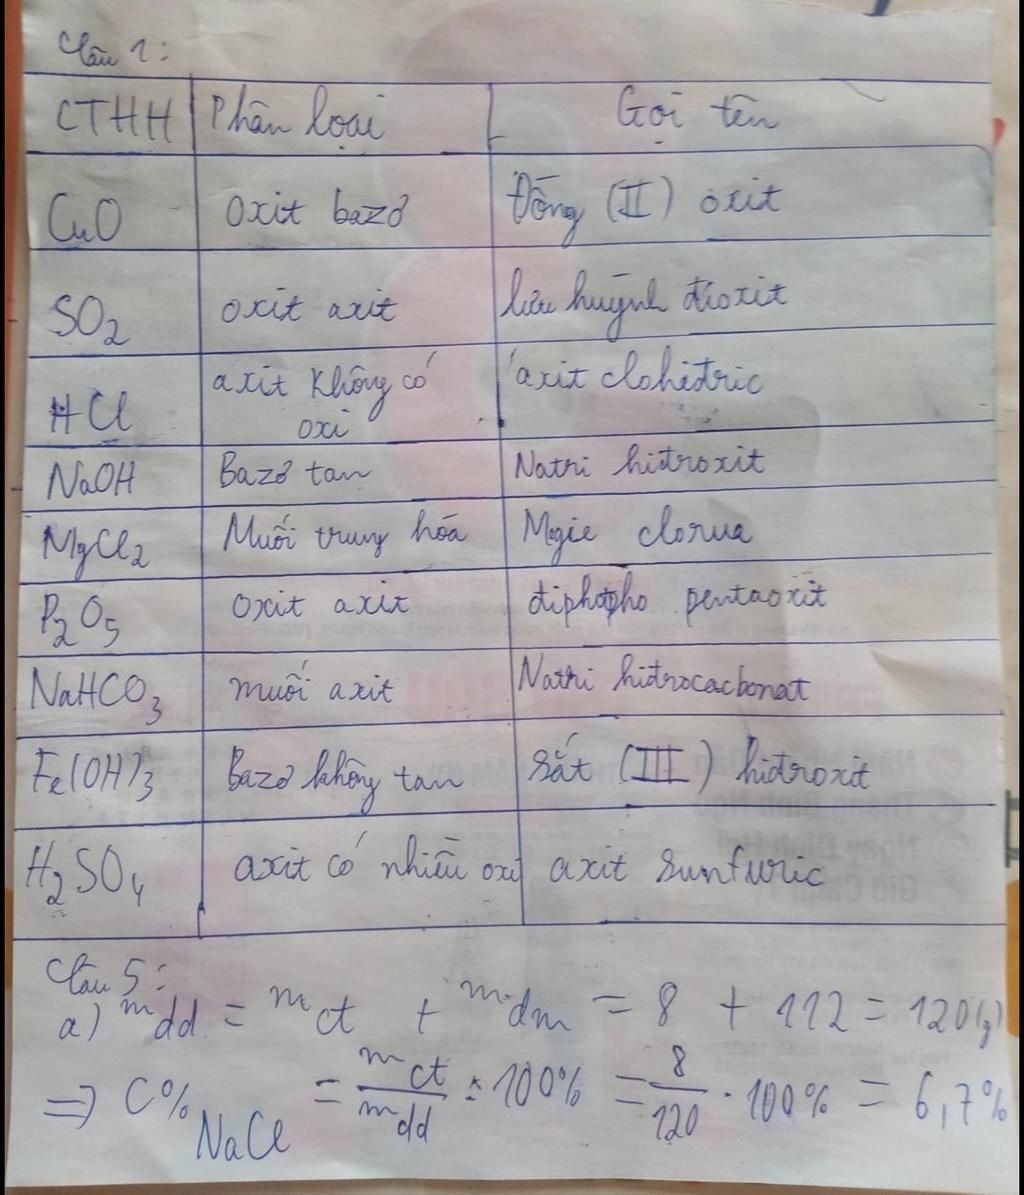 Câu 1:
CTHH Phân loại Gọi tên
CuO oxit bazơ Đồng (II) oxit
SO2 oxit axit lưu huỳnh đioxit
HCl axit không có oxi axit clohiđric
NaOH Bazơ tan Natri hiđroxit
MgCl2 Muối trung hóa Mgie clorua
P2O5 oxit axit điphotpho pentaoxit
NaHCO3 muối axit Natri hiđrocacbonat
Fe(OH)3 Bazơ không tan sắt (III) hiđroxit
H2SO4 axit có nhiều oxi axit sunfuric
Câu 5:
a) mdd = mct + mdm = 8 + 112 = 120(g)
=> C% NaCl = mct/mdd . 100% = 8/120 . 100% = 6,7%